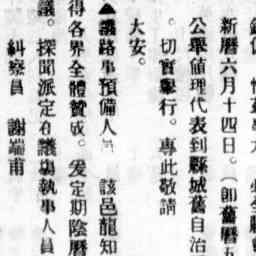 新曆六月十四日。（卽舊曆五
公舉値理代表到縣城舊自治
。切實舉行。專此敬請
大安。
▲議路事預備人　該邑龍知
得各界全體贊成。爰定期陰曆
議。探聞派定在議塲執事人員
糾察員　謝端甫